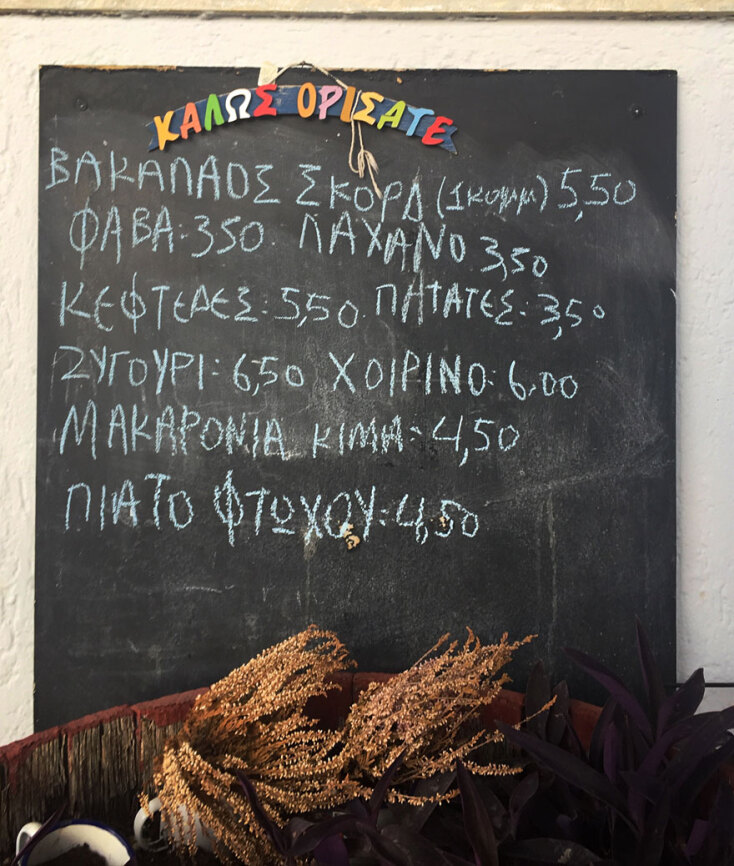 ΚΑΛΩΣ ΟΡΙΣΑΤΕ
ΒΑΚΑΛΑΟΣ ΣΚΟΡΔ (1κομμ) 5,50
ΦΑΒΑ: 350 ΛΑΧΑΝΟ 3,50
ΚΕΦΤΕΔΕΣ: 5,50 ΠΑΤΑΤΕΣ: 3,50
ΖΥΓΟΥΡΙ: 6,50 ΧΟΙΡΙΝΟ: 6,00
ΜΑΚΑΡΟΝΙΑ ΚΙΜΑ: 4,50
ΠΙΑΤΟ ΦΤΩΧΟΥ: 4,50